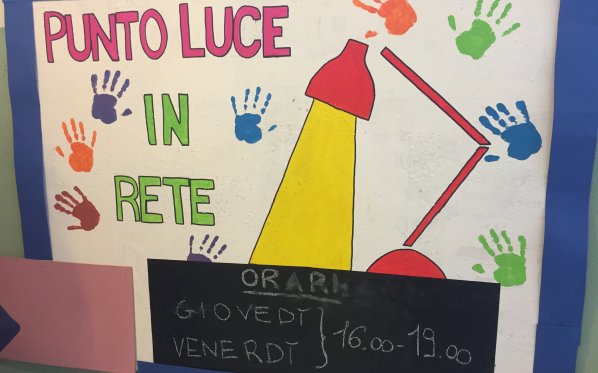 PUNTO LUCE
IN
RETE
ORARI
GIOVEDI
VENERDI
16.00-19.00